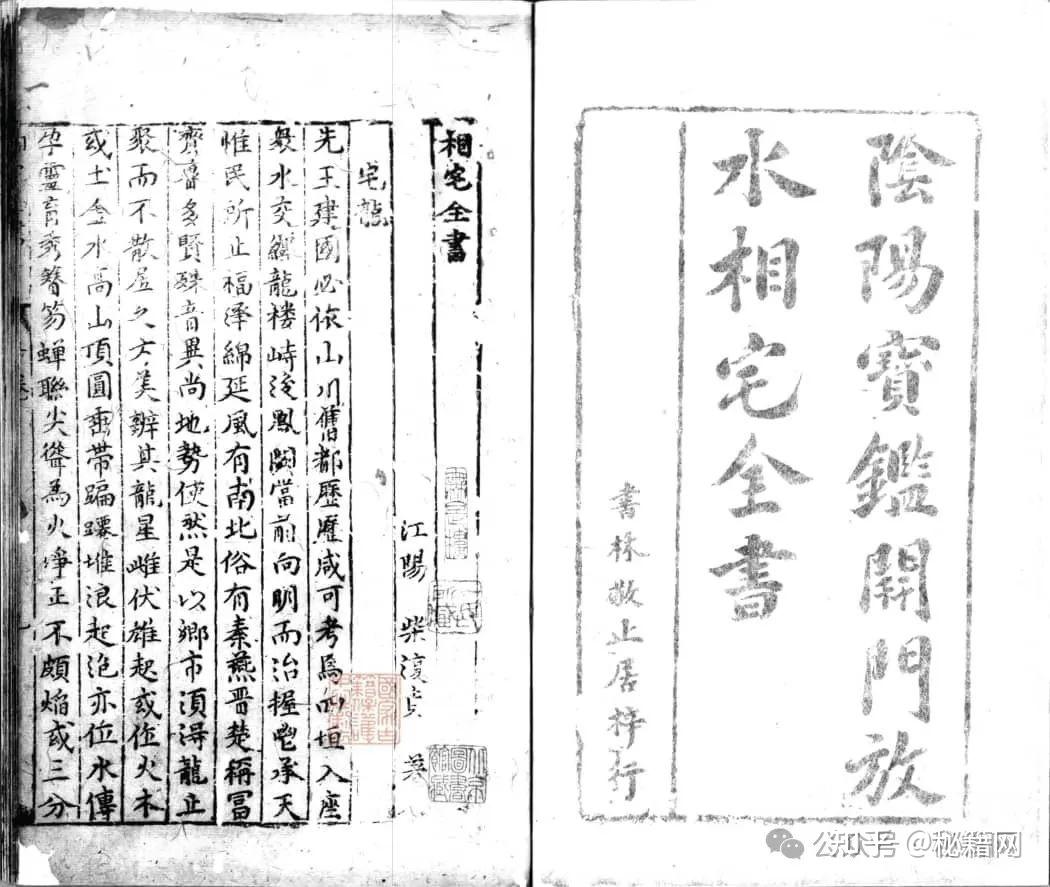 陰陽寶鑑開門放
水相宅全書
書林敬止居梓行
相宅全書
江陽 柴復貞
宅龍
先王建國必依山川舊都歷歷咸可考為四垣入座
衆水交纏龍樓峙後鳳闕當前向明而治握乾承天
惟民所止福澤綿延風有南北俗有秦燕晋楚稱富
齊魯多賢殊音異尚地勢使然是以鄉市須得龍止
聚而不散居之方美辨其龍星雌伏雄起或位火木
或土金水高山頂圓垂帶蹁躚堆浪起泡亦位水傳
孕靈育秀簪笏蟬聯尖聳為火崢正不頗焰或三分
知乎 @秘籍网